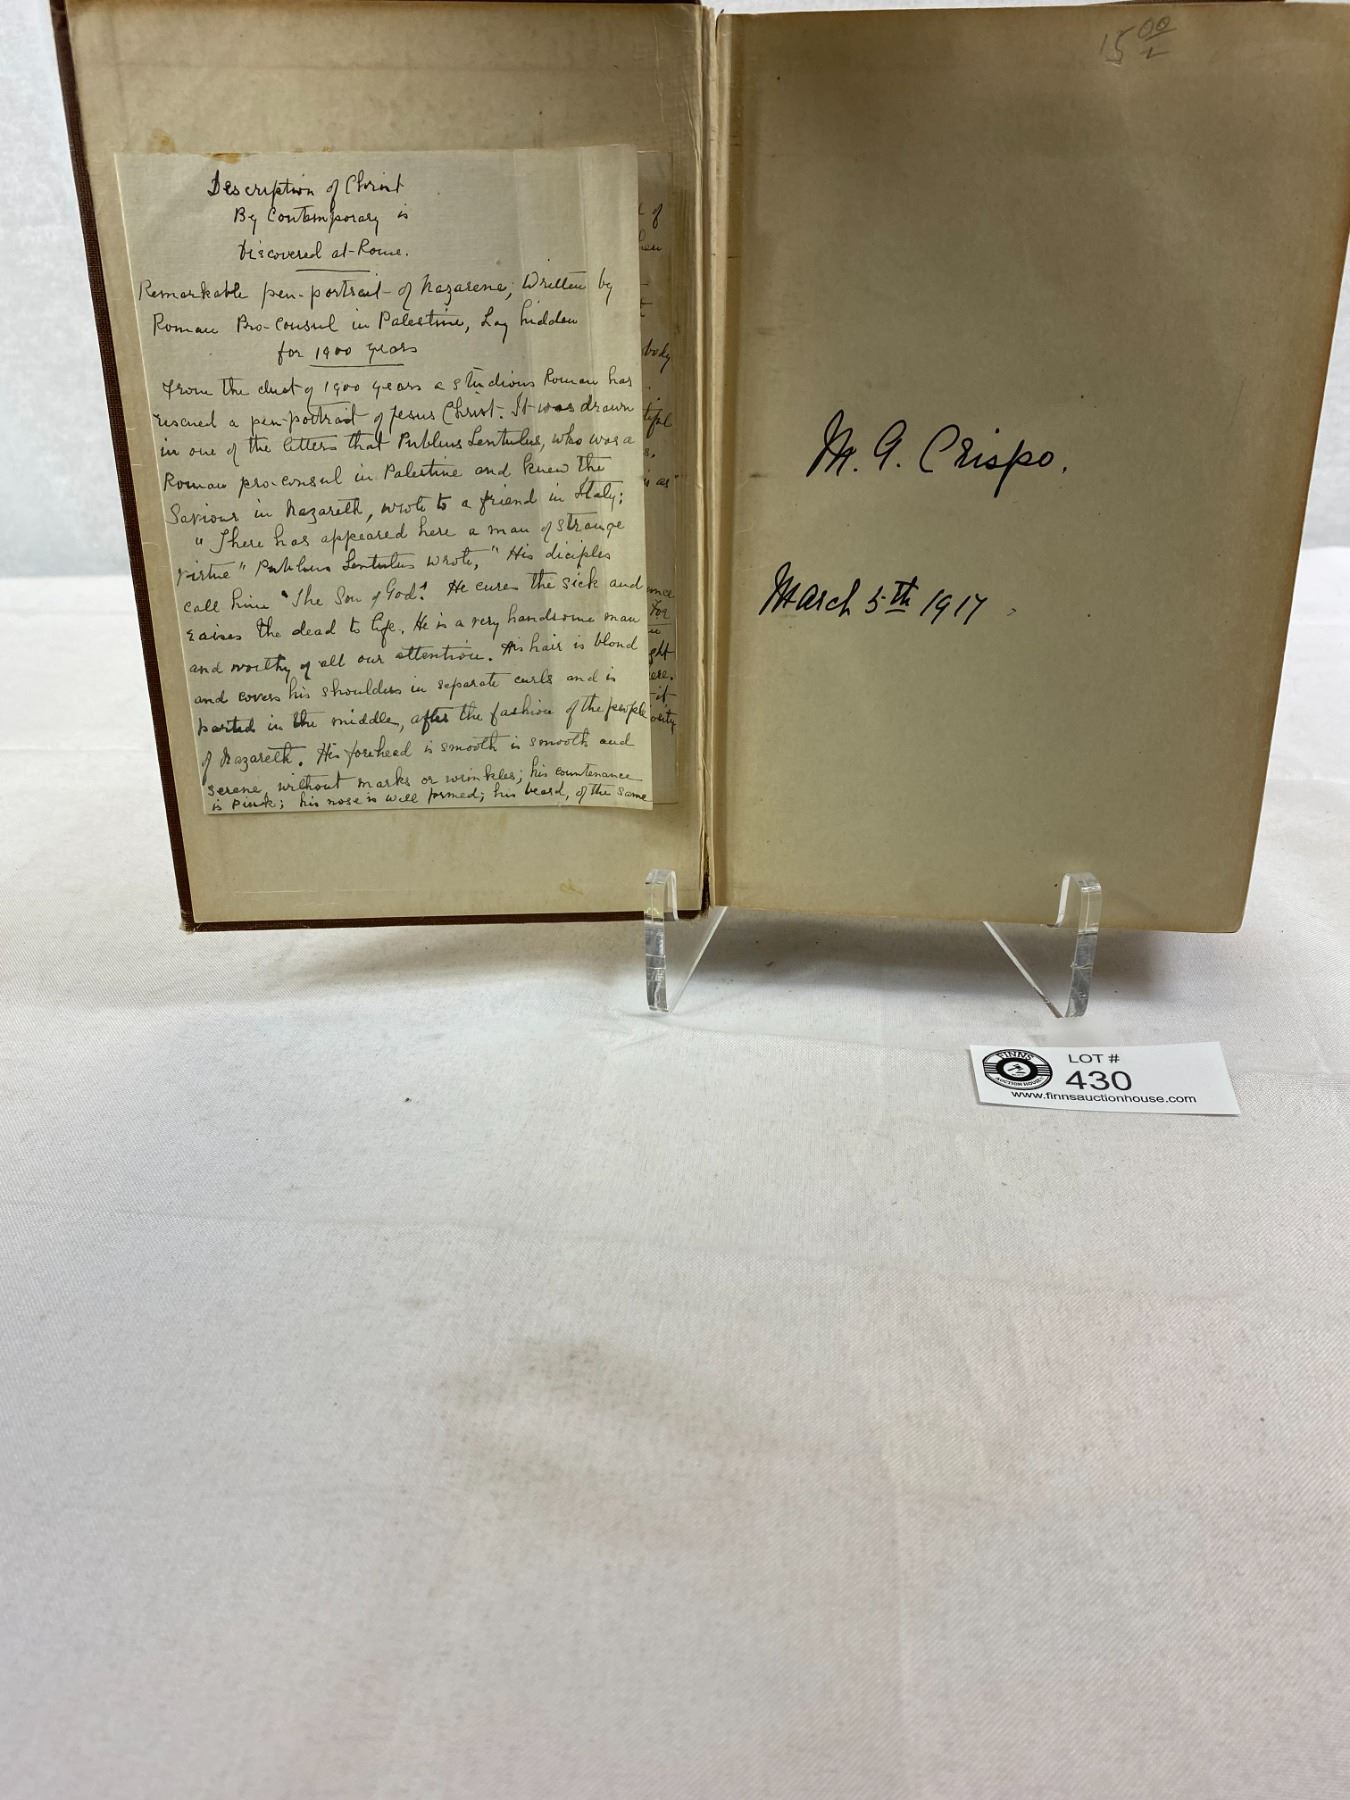 Description of Christ
By Contemporary is
Discovered at Rome.
Remarkable pen-portrait of Nazarene, Written by
Roman Pro-Consul in Palestine, Lay hidden
for 1900 years
From the dust of 1900 years a studious Roman has
rescued a pen-portrait of Jesus Christ. It was drawn
in one of the letters that Publius Lentulus, who was a
Roman pro-consul in Palestine and knew the
Saviour in Nazareth, wrote to a friend in Italy;
"There has appeared here a man of strange
virtue" Publius Lentulus wrote, "His diciples
call him 'The Son of God'. He cures the sick and
raises the dead to life. He is a very handsome man
and worthy of all our attention. His hair is blond
and covers his shoulders in separate curls and is
parted in the middle, after the fashion of the people
of Nazareth. His forehead is smooth is smooth and
serene, without marks or wrinkles; his countenance
is pink; his nose is well formed; his beard, of the same
of
body
as"
For
ere.
it
15 00
M. G. Crispo.
March 5th 1917
FINNS
AUCTION HOUSE
LOT #
430
www.finnsauctionhouse.com